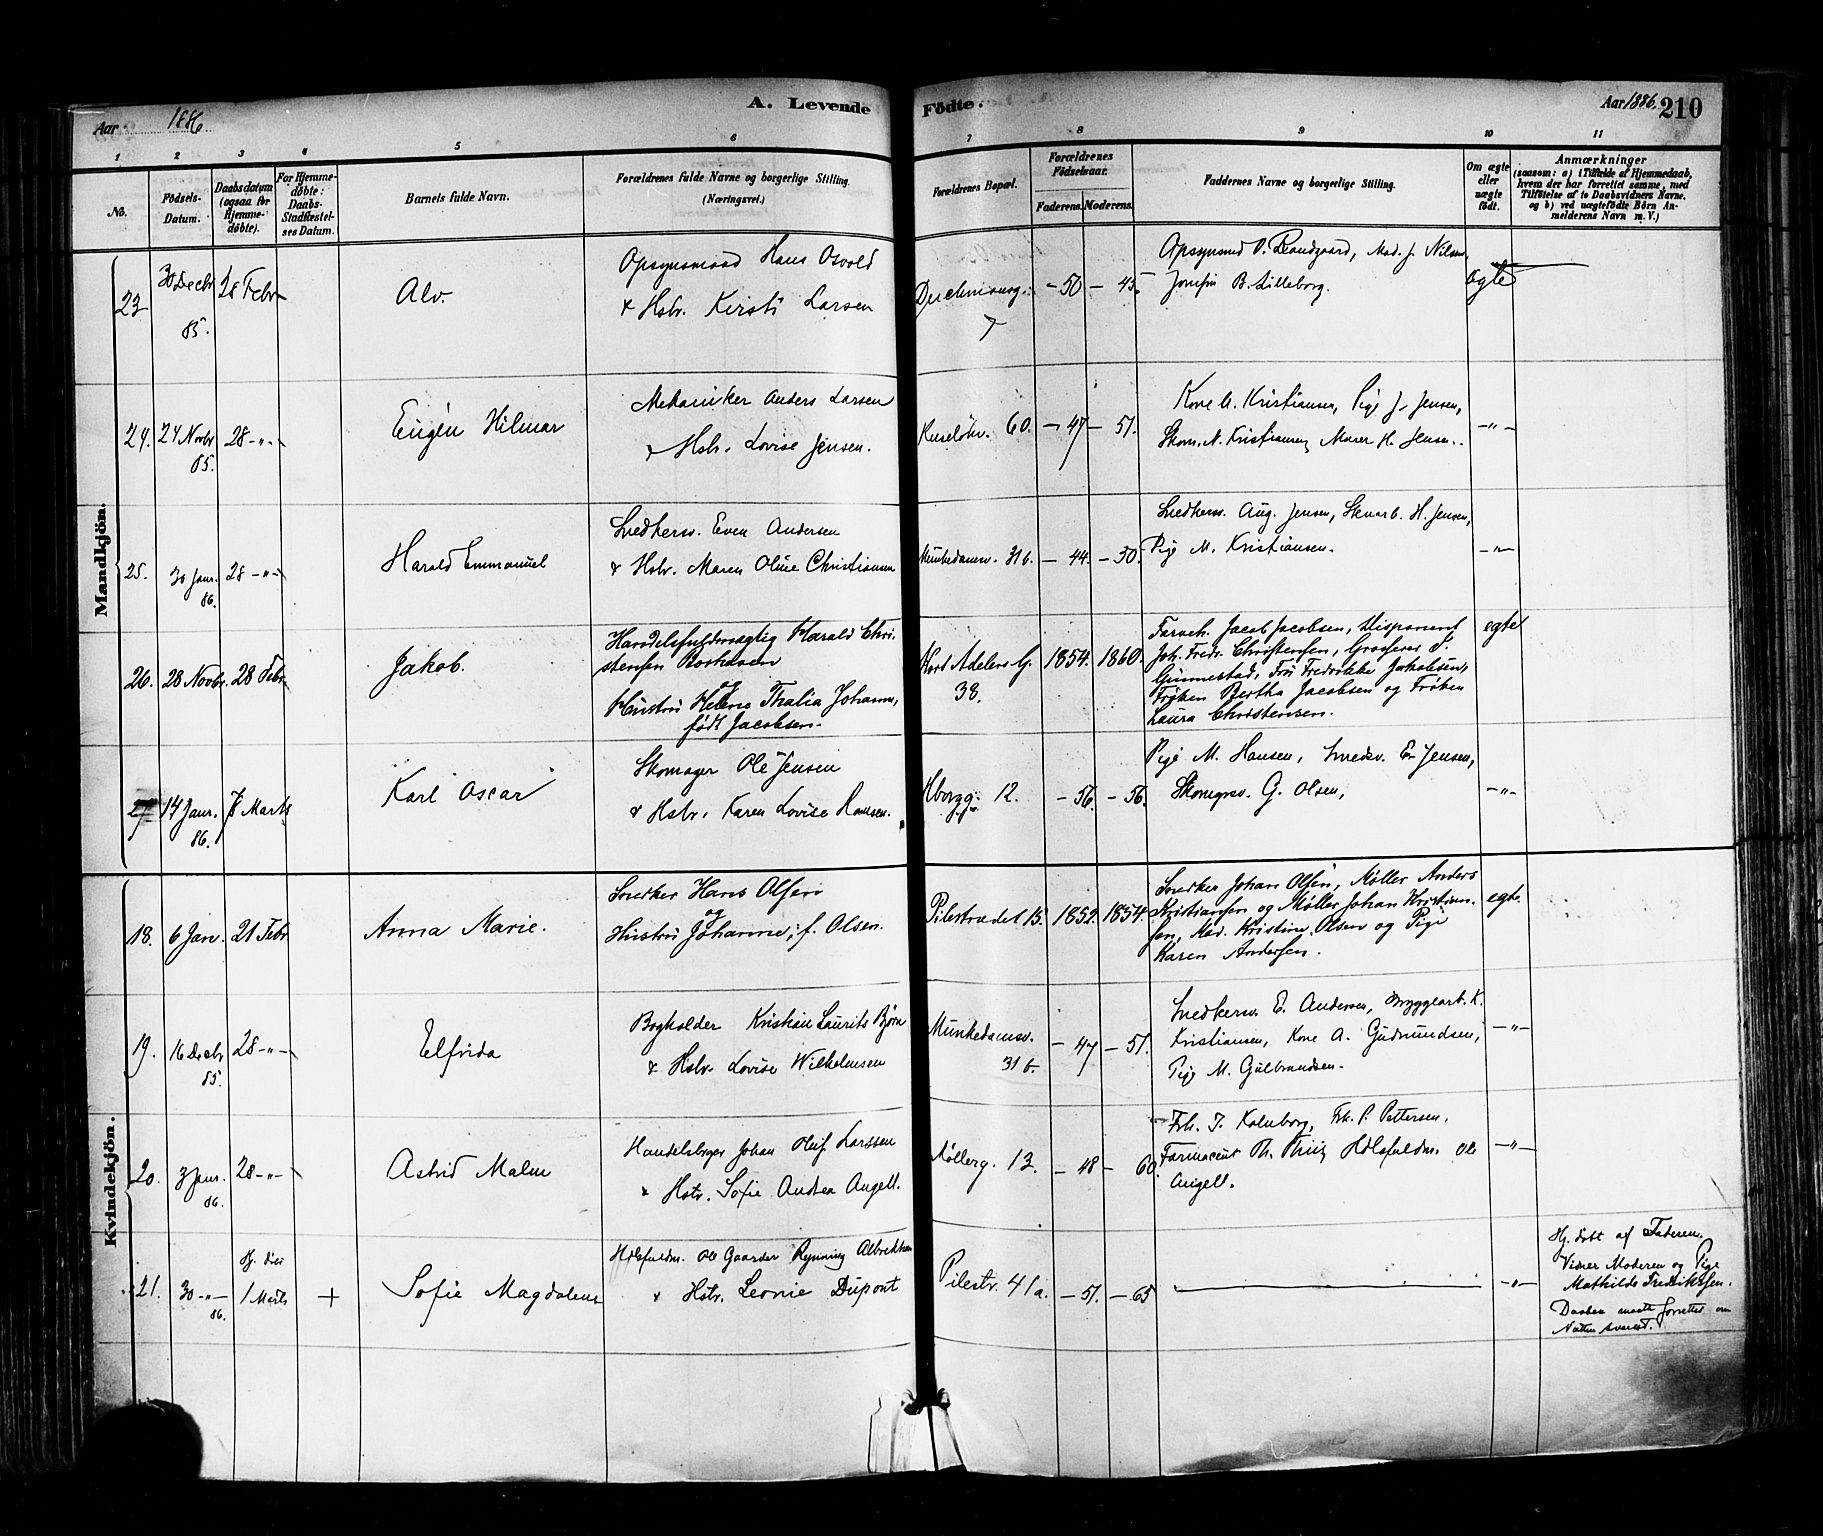 Aar 1886
A. Levende
Fødte.
Aar 1886. 210
1 2 3 4 5 6 7 8 9 10 11
No.
Födsels-Datum.
Daabsdatum (ogsaa for Hjemme-döbte).
For Hjemme-döbte: Daabs-Stadfæstel-ses Datum.
Barnets fulde Navn.
Forældrenes fulde Navne og borgerlige Stilling. (Næringsvei.)
Forældrenes Bopæl.
Forældrenes Födselsaar.
Faderens. Moderens.
Faddernes Navne og borgerlige Stilling.
Om ægte eller uægte födt.
Anmærkninger
(saasom: a) i Tilfælde af Hjemmedaab,
hvem der har forrettet samme, med
Tilföielse af to Daabsvidners Navne.
og b) ved uægtefödte Börn An-
melderens Navn m. V.)
Mandkjön.
23. 30 Decbr 85. 28 Febr
Alv.
Opsynsmand Hans Osvold
& Hstr. Kirsti Larsen
7
- 50 - 45.
Opsynsmd O. Brandgaard, Mad. J. Nilsen,
Josefin B. Lilleborg.
ægte
24. 24 Novbr 85. 28 -"-
Eugén Hilmar
Mekaniker Anders Larsen
& Hstr. Lovise Jensen.
Ruseløkv. 60.
- 47 - 51.
Kone A. Kristiansen, Pige J. Jensen,
Skom. N. Kristiansen, Murer H. Jensen.
-"-
25. 30 Janr. 86. 28 -"-
Harald Emmanuel
Snedkersv. Even Andersen
& Hstr. Maren Oline Christiansen
Munkedamsv. 31 b.
- 44. - 50.
Snedkersv. Aug. Jensen, Stuearb. H. Jensen,
Pige M. Kristiansen.
-"-
26. 28 Novbr. 28 Febr
Jakob.
Handelsfuldmægtig Harald Chri-
stensen
og
Hustru Helene Thalia Johanne,
født Jacobsen.
Kort Adelers G. 38.
1854. 1860.
Jacob Jacobsen, Disponent
Joh. Fredr. Christensen, Grosserer S.
Gimmestad, Fru Fredrikke Jakobsen,
Frøken Bertha Jacobsen og Frøken
Laura Christensen.
egte
27 14 Janr. 86. 7 Marts
Karl Oscar
Skomager Ole Jensen
& Hstr. Karen Lovise Hansen.
12.
- 56. - 56.
Pige M. Hansen, Smedsv. E. Jensen,
Skomgrsv. G. Olsen,
-"-
Kvindekjön.
18. 6 Jan. 21 Febr
Anna Marie.
Snedker Hans Olsen
og
Hustru Johanne, f. Olsen.
Pilestrædet 15.
1852. 1854.
Snedker Johan Olsen, Møller Anders
Kristiansen og Møller Johan Kristian-
sen, Mad. Kristine Olsen og Pige
Karen Andersen.
egte.
19. 16 Decbr 85. 28 -"-
Elfrida
Bogholder Kristian Laurits Bjørn
& Hstr. Lovise Wilhelmsen
Munkedamsv. 31 b.
- 47 - 51.
Snedkersv. E. Andersen, Bryggearb. K.
Kristiansen, Kone A. Gudmundsen,
Pige M. Gulbrandsen.
-"-
20. 3 Janr. 86. 28 -"-
Astrid Malm
Handelsbgr Johan Oluf Larssen
& Hstr. Sofie Andrea Angell.
Møllerg. 13.
- 48 - 60.
Frk. I. Kalnborg, Frk. P. Pettersen,
Farmaceut Th. Thiis, Hdlsfuldm. Ole
Angell.
-"-
21. 30 -"- 86. Hj. døbt 1 Marts +
Sofie Magdalena
Hdlsfuldm. Ole Gaarder Rynning Albrektsen
& Hstr. Leonie Dupont
Pilestr. 41 a.
- 51. - 65
-"-
Hj. døbt af Faderen.
Vidner Moderen og Pige
Mathilde Fredriksen.
Daaben maatte forrettes om
Natten